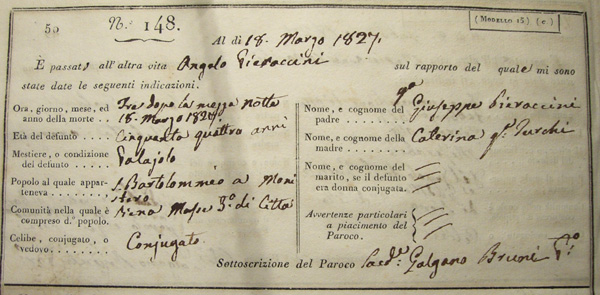 50 N.º 148. (Modello 15) (c)
Al dì 18. Marzo 1827.
È passato all'altra vita Angelo Pieraccini sul rapporto del quale mi sono
state date le seguenti indicazioni.
Ora, giorno, mese, ed anno della morte . . Tre dopo la mezza notte
18. Marzo 1827.
Età del defunto . . . . Cinquanta quattro anni
Mestiere, o condizione
del defunto . . . .
Popolo al quale apparteneva . . . . . S. Bartolommeo a Moni
stero
Comunità nella quale è
compreso d.º popolo. Siena Masse 3.º di Città
Celibe, conjugato, o
vedovo . . . . . . Conjugato
Nome, e cognome del
padre . . . . . . . qº Giuseppe Pieraccini
Nome, e cognome della
madre . . . . . . . Caterina qº Turchi
Nome, e cognome del
marito, se il defunto
era donna conjugata.
Avvertenze particolari
a piacimento del
Paroco.
Sottoscrizione del Paroco Sacd.e Galgano Bruni